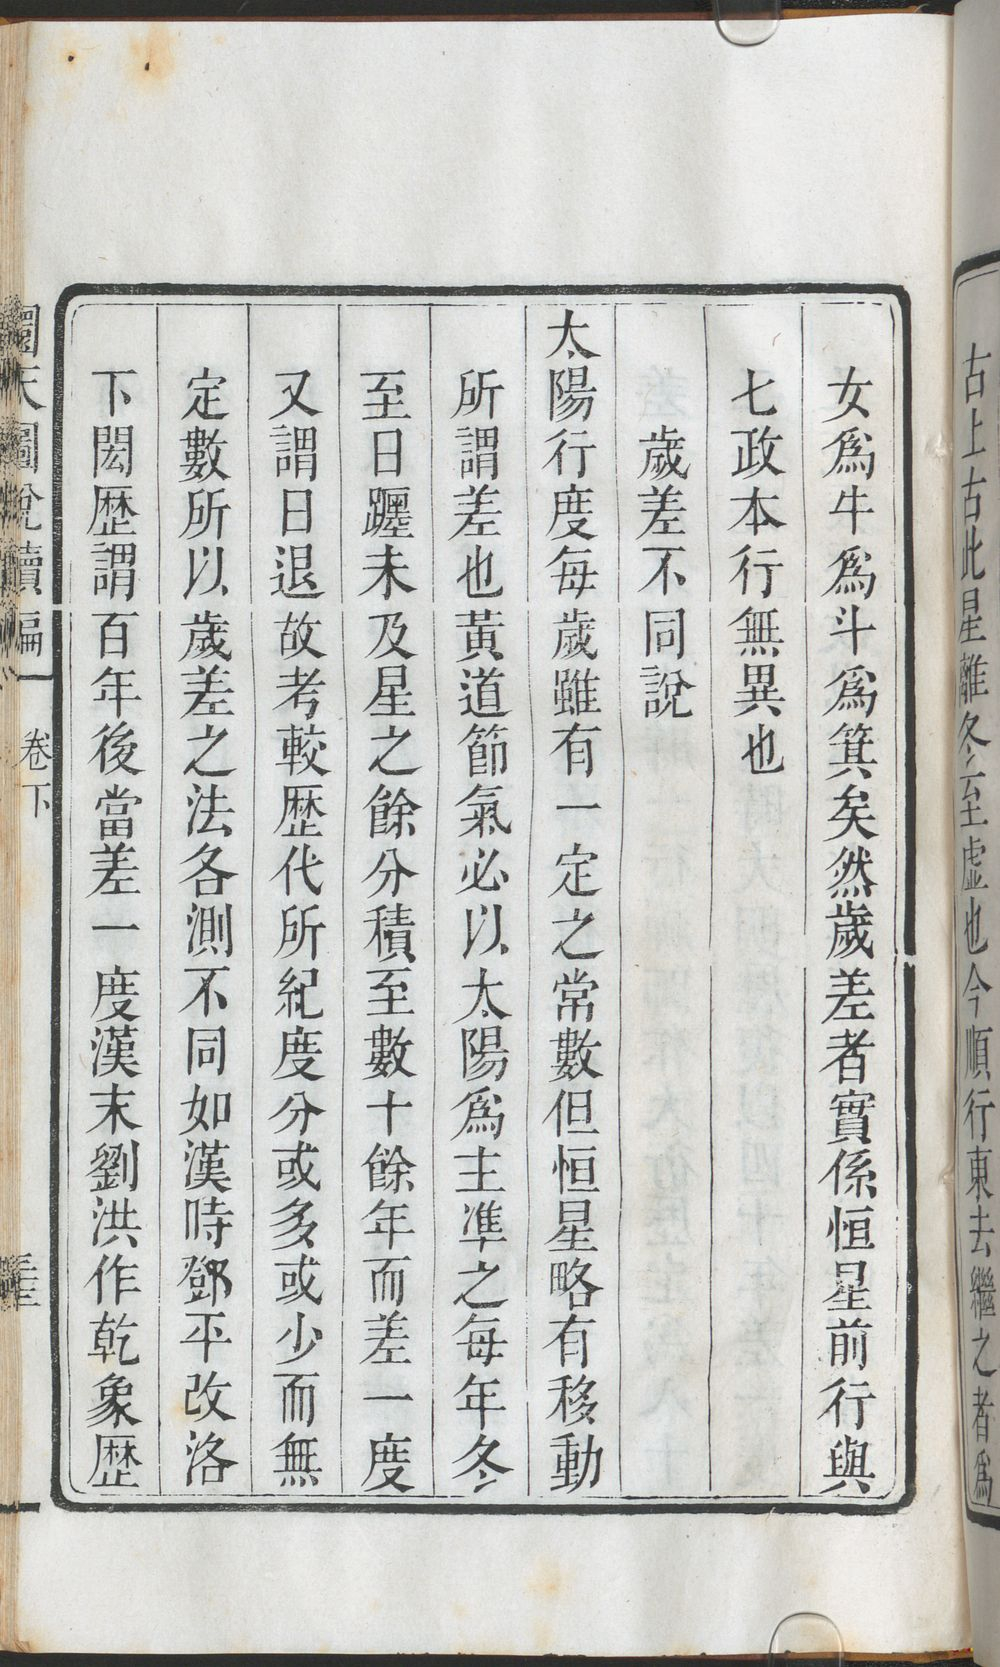 古上古此星離冬至虛也今順行東去繼之者爲
女爲牛爲斗爲箕矣然歲差者實係恒星前行與
七政本行無異也
歲差不同說
太陽行度每歲雖有一定之常數但恒星略有移動
所謂差也黃道節氣必以太陽爲主準之每年冬
至日躔未及星之餘分積至數十餘年而差一度
又謂日退故考較歷代所紀度分或多或少而無
定數所以歲差之法各測不同如漢時鄧平改洛
下閎歷謂百年後當差一度漢末劉洪作乾象歷
圜天圖說續編
卷下